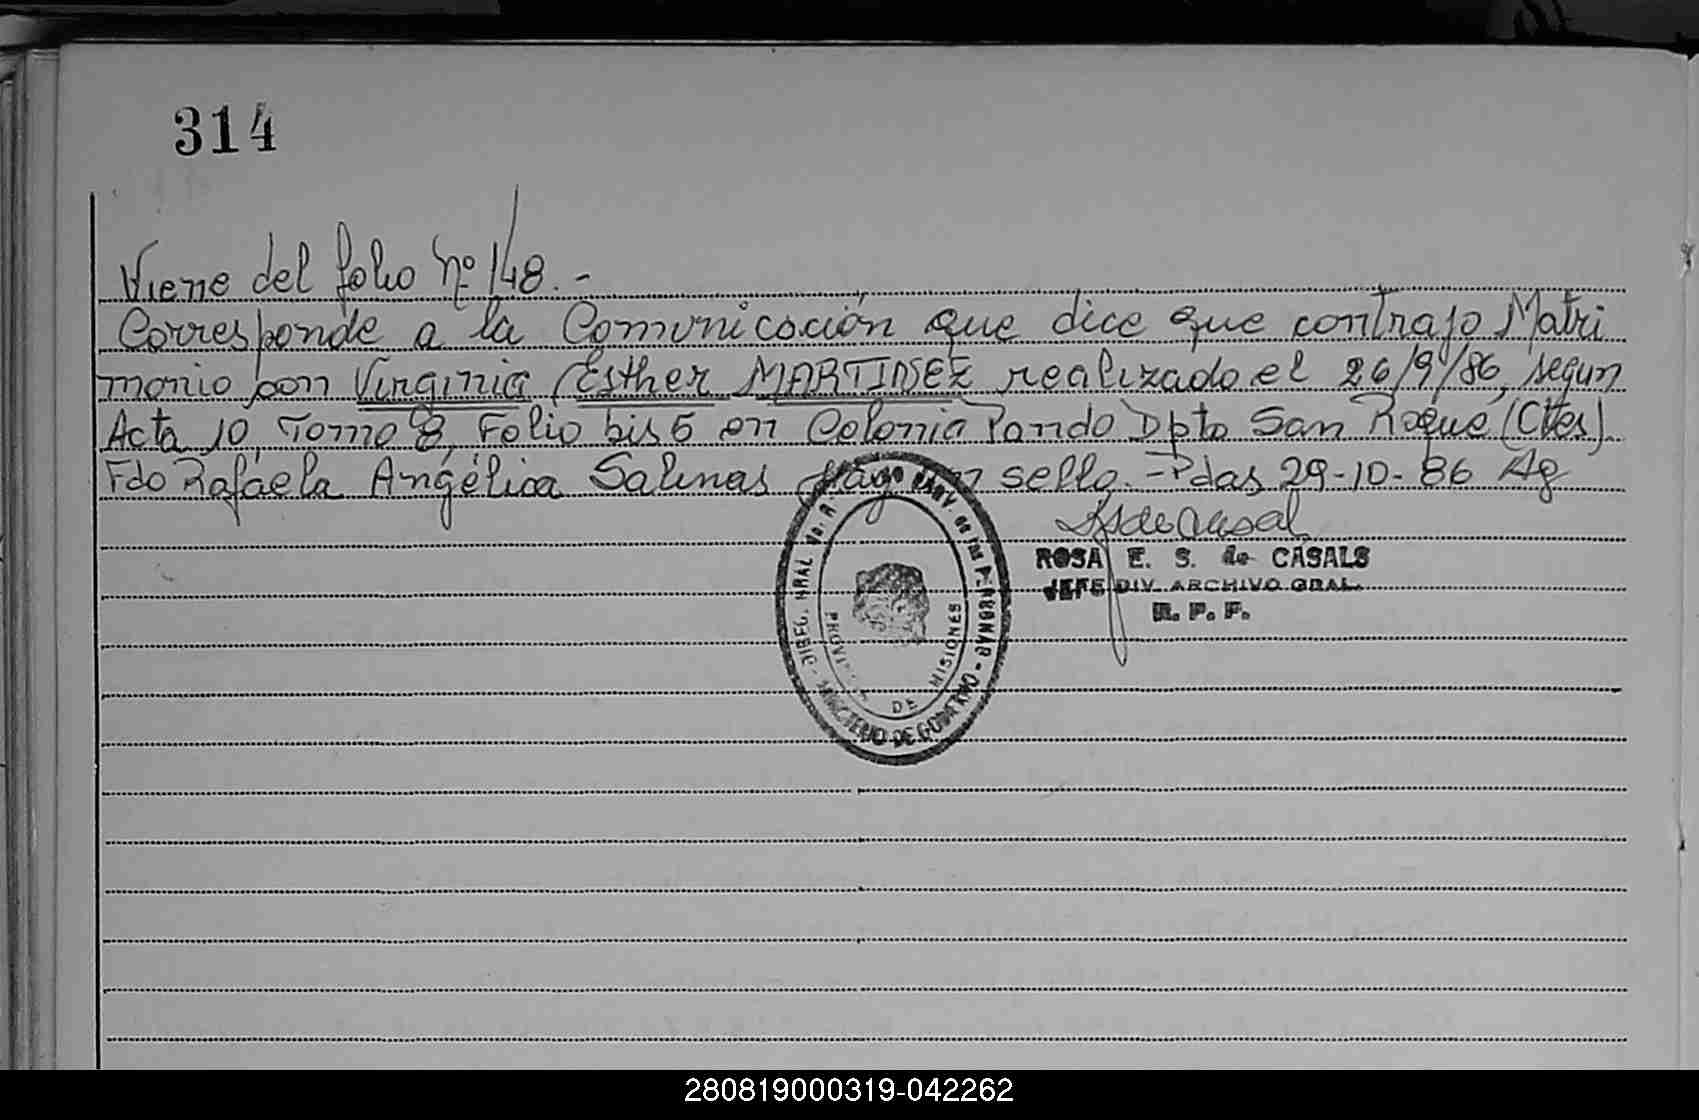 314
Viene del folio Nº 148.-
Corresponde a la Comunicación que dice que contrajo Matri
monio con Virginia Esther MARTINEZ realizado el 26/9/86, segun
Acta 10, Tomo 8, Folio bis 5 en Colonia Pando Dpto San Roque (Ctes).
Fdo Rafaela Angélica Salinas Hay un sello.- Pdas 29-10-86
ROSA E. S. de CASALS
JEFE DIV. ARCHIVO GRAL.
R. P. P.
MINISTERIO DE GOBIERNO
DE MISIONES
280819000319-042262